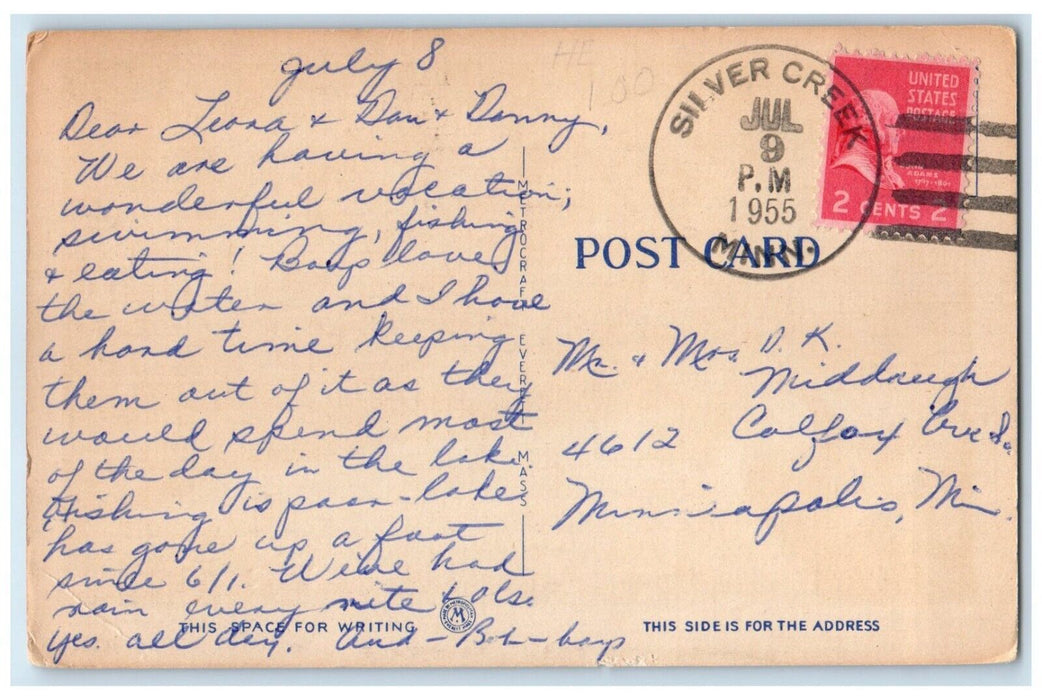 July 8
HE
1 00
Dear Leona & Dau & Danny,
We are having a
wonderful vacation;
swimming, fishing
& eating! Boys love
the water and I have
a hard time keeping
them out of it as they
would spend most
of the day in the lake.
Fishing is poor - lake
has gone up a foot
since 6/1. We've had
rain every nite &
yes. all day. And - Bob - boys
METROCRAFT EVERETT, MASS
THIS SPACE FOR WRITING
SILVER CREEK
JUL
9
P.M
1955
MINN.
UNITED
STATES
POSTAGE
JOHN
ADAMS
1797-1801
2 CENTS 2
POST CARD
Mr. & Mrs. D. K.
Middaugh
4612 Colfax Ave So.
Minneapolis, Mn.
THIS SIDE IS FOR THE ADDRESS